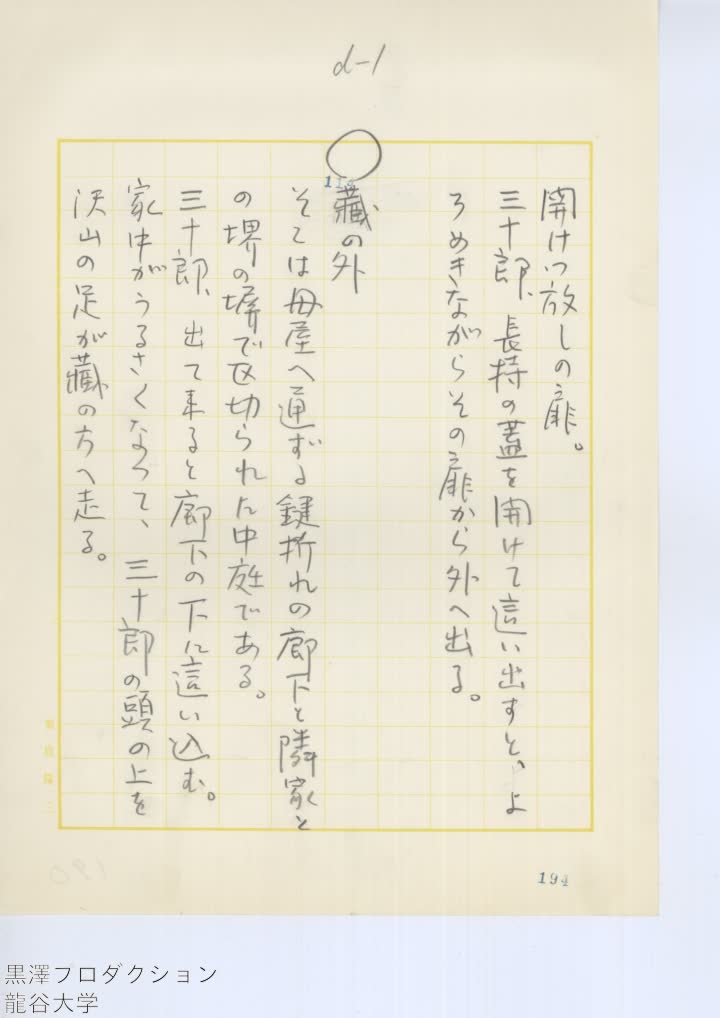 d-1
開けっ放しの扉。
三十郎、長持の蓋を開けて這い出すと、よ
ろめきながらその扉から外へ出る。
118
藏の外
そこは母屋へ通ずる鍵折れの廊下と隣家と
の堺の塀で区切られた中庭である。
三十郎、出て来ると廊下の下に這い込む。
家中がうるさくなって、三十郎の頭の上を
沢山の足が藏の方へ走る。
194
黒澤プロダクション
龍谷大学